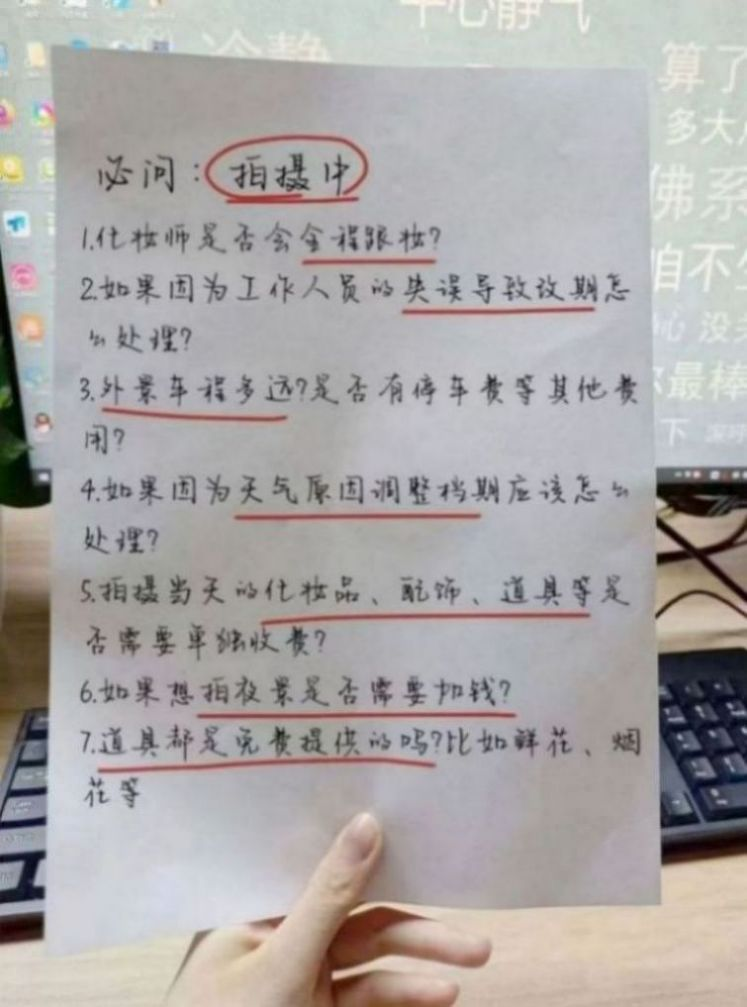 平心静气
冷静
算了
多大
佛系
咱不
心 没
最棒
下 深呼
必问：拍摄中
1.化妆师是否会全程跟妆？
2.如果因为工作人员的失误导致改期怎
么处理？
3.外景车程多远？是否有停车费等其他费
用？
4.如果因为天气原因调整档期应该怎么
处理？
5.拍摄当天的化妆品、配饰、道具等是
否需要单独收费？
6.如果想拍夜景是否需要加钱？
7.道具都是免费提供的吗？比如鲜花、烟
花等